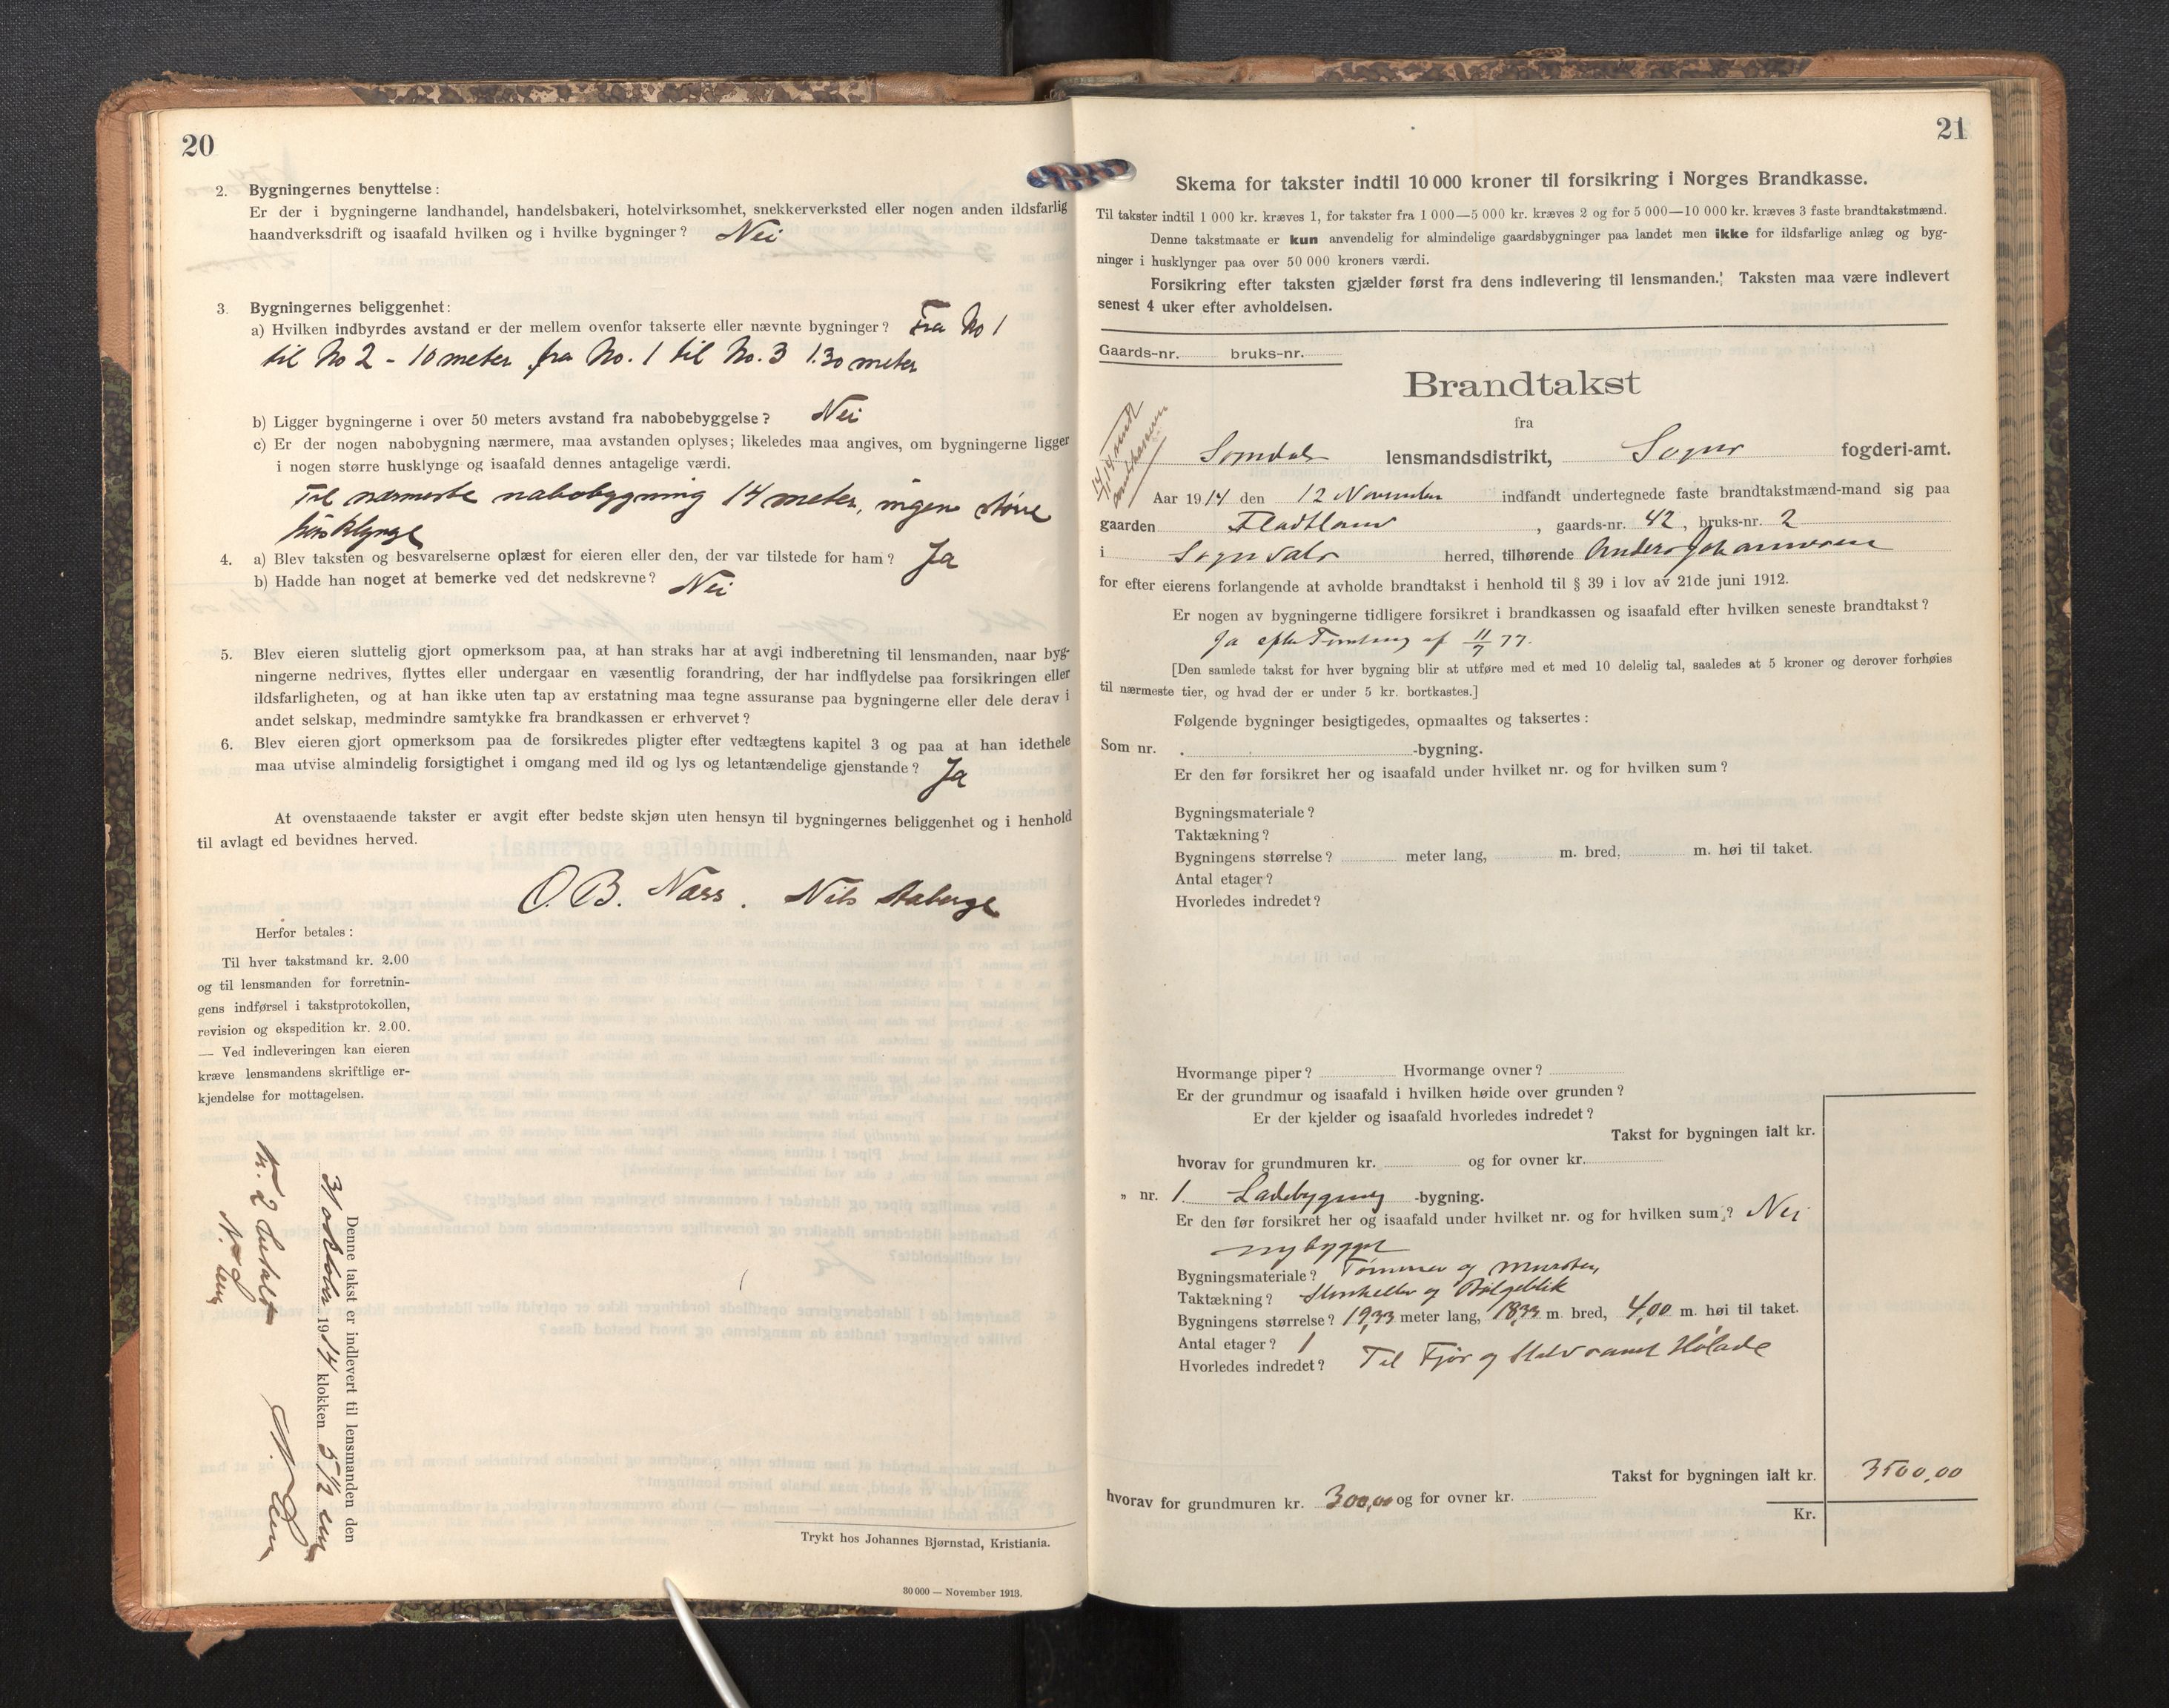 20
2. Bygningernes benyttelse:
Er der i bygningerne landhandel, handelsbakeri, hotelvirksomhet, snekkerverksted eller nogen anden ildsfarlig
haandverksdrift og isaafald hvilken og i hvilke bygninger? Nei
3. Bygningernes beliggenhet:
a) Hvilken indbyrdes avstand er der mellem ovenfor takserte eller nævnte bygninger? Fra No 1
til No 2 - 10 meter fra No. 1 til No. 3 1.30 meter
b) Ligger bygningerne i over 50 meters avstand fra nabobebyggelse? Nei
c) Er der nogen nabobygning nærmere, maa avstanden oplyses; likeledes maa angives, om bygningerne ligger
i nogen større husklynge og isaafald dennes antagelige værdi.
Til nærmeste nabobygning 14 meter, ingen større
husklynge
4. a) Blev taksten og besvarelserne oplæst for eieren eller den, der var tilstede for ham? Ja
b) Hadde han noget at bemerke ved det nedskrevne? Nei
5. Blev eieren sluttelig gjort opmerksom paa, at han straks har at avgi indberetning til lensmanden, naar byg-
ningerne nedrives, flyttes eller undergaar en væsentlig forandring, der har indflydelse paa forsikringen eller
ildsfarligheten, og at han ikke uten tap av erstatning maa tegne assuranse paa bygningerne eller dele derav i
andet selskap, medmindre samtykke fra brandkassen er erhvervet?
6. Blev eieren gjort opmerksom paa de forsikredes pligter efter vedtægtens kapitel 3 og paa at han idethele
maa utvise almindelig forsigtighet i omgang med ild og lys og letantændelige gjenstande? Ja
At ovenstaaende takster er avgit efter bedste skjøn uten hensyn til bygningernes beliggenhet og i henhold
til avlagt ed bevidnes herved.
O. B. Næss. Nils Aaberge
Herfor betales:
Til hver takstmand kr. 2.00
og til lensmanden for forretnin-
gens indførsel i takstprotokollen,
revision og ekspedition kr. 2.00.
— Ved indleveringen kan eieren
kræve lensmandens skriftlige er-
kjendelse for mottagelsen.
Denne takst er indlevert til lensmanden den
31 oktober 1914 klokken 5 1/2 em
Kr. 2 betalt
Trykt hos Johannes Bjørnstad, Kristiania.
30 000 — November 1913.
21
Skema for takster indtil 10 000 kroner til forsikring i Norges Brandkasse.
Til takster indtil 1 000 kr. kræves 1, for takster fra 1 000—5 000 kr. kræves 2 og for 5 000—10 000 kr. kræves 3 faste brandtakstmænd.
Denne takstmaate er kun anvendelig for almindelige gaardsbygninger paa landet men ikke for ildsfarlige anlæg og byg-
ninger i husklynger paa over 50 000 kroners værdi.
Forsikring efter taksten gjælder først fra dens indlevering til lensmanden. Taksten maa være indlevert
senest 4 uker efter avholdelsen.
Gaards-nr. bruks-nr.
Brandtakst
fra
Sogndals lensmandsdistrikt, Sogns fogderi-amt.
Aar 1914 den 12 November indfandt undertegnede faste brandtakstmænd-mand sig paa
gaarden Fladtland, gaards-nr. 42, bruks-nr. 2
i Sogndals herred, tilhørende Anders Johannesen
for efter eierens forlangende at avholde brandtakst i henhold til § 39 i lov av 21de juni 1912.
Er nogen av bygningerne tidligere forsikret i brandkassen og isaafald efter hvilken seneste brandtakst?
Ja efter Forretning af 11/7 77.
[Den samlede takst for hver bygning blir at utføre med et med 10 delelig tal, saaledes at 5 kroner og derover forhøies
til nærmeste tier, og hvad der er under 5 kr. bortkastes.]
Følgende bygninger besigtigedes, opmaaltes og taksertes:
Som nr. -bygning.
Er den før forsikret her og isaafald under hvilket nr. og for hvilken sum?
Bygningsmateriale?
Taktækning?
Bygningens størrelse? meter lang, m. bred, m. høi til taket.
Antal etager?
Hvorledes indredet?
Hvormange piper? Hvormange ovner?
Er der grundmur og isaafald i hvilken høide over grunden?
Er der kjelder og isaafald hvorledes indredet?
Takst for bygningen ialt kr.
hvorav for grundmuren kr. og for ovner kr.
„ nr. 1 Ladebygning -bygning.
Er den før forsikret her og isaafald under hvilket nr. og for hvilken sum? Nei
nybygget
Bygningsmateriale? Tømmer og Mursten
Taktækning? Stenheller og Bølgeblik
Bygningens størrelse? 19,33 meter lang, 18,33 m. bred, 4,00 m. høi til taket.
Antal etager? 1
Hvorledes indredet? Til Fjøs og Stald samt Hølade
Takst for bygningen ialt kr. 3500,00
hvorav for grundmuren kr. 300,00 og for ovner kr.
Kr.